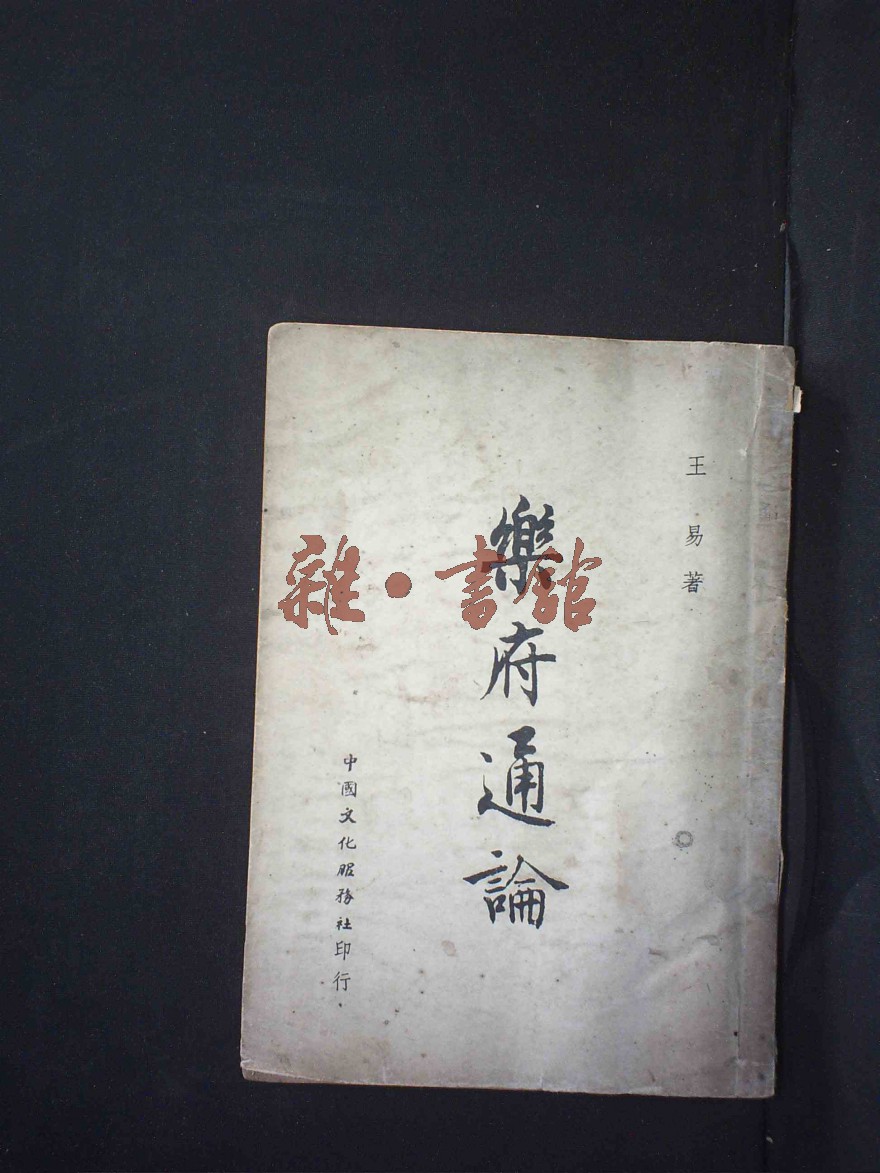 王易著
樂府通論
中國文化服務社印行
雜·書館